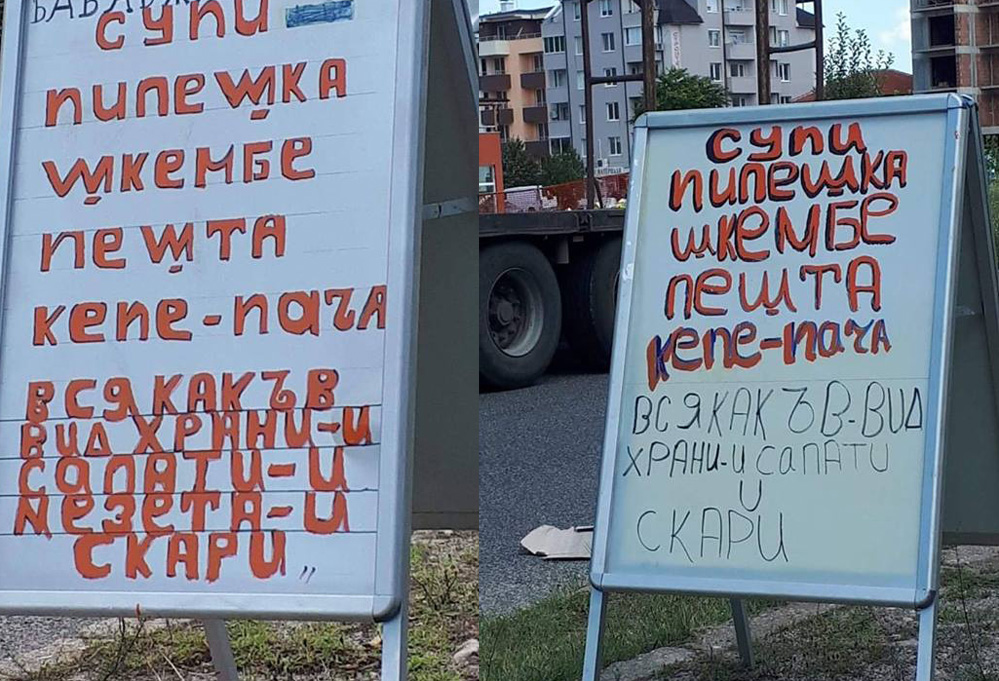 СУПИ
ПИПЕШКА
ШКЕМБЕ
ПЕШТА
КЕПЕ-ПАЧА
ВСЯКАКЪВ
ВИД ХРАНИ-И
САПАТИ-И
МЕЗЕТА-И
СКАРИ „
СУПИ
ПИПЕШКА
ШКЕМБЕ
ПЕШТА
КЕПЕ-ПАЧА
ВСЯКАКЪВ-ВИД
ХРАНИ-И САПАТИ
И
СКАРИ